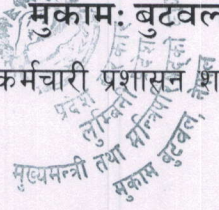 मुकामः बुटवल
कर्मचारी प्रशासन श
प्रदेश
लुम्बिनी
मुख्यमन्त्री तथा मन्त्रिपरिषद्को
मुकाम बुटवल, नेपाल